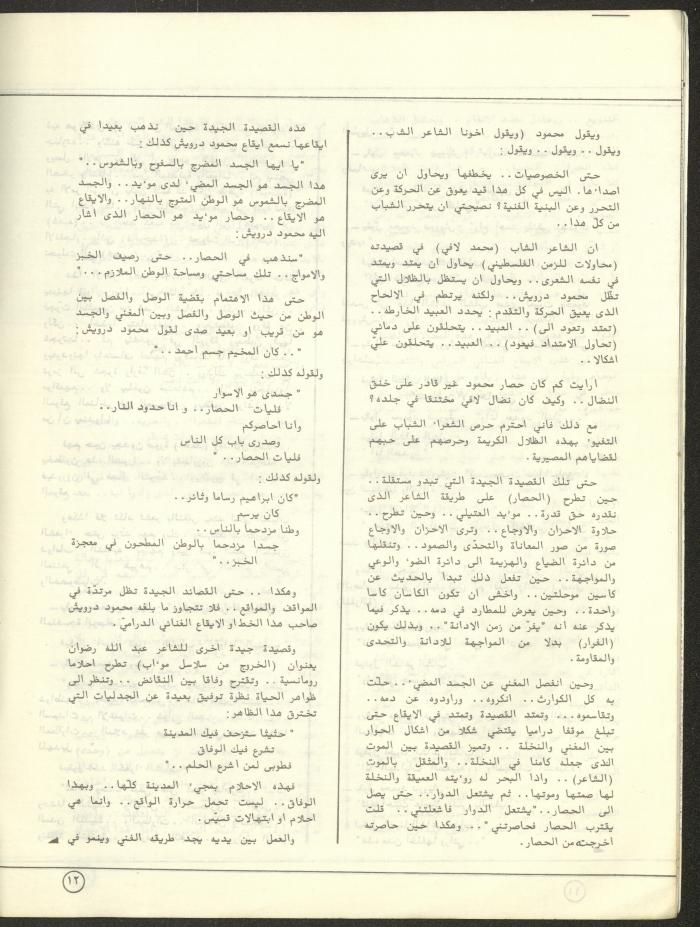 ويقول محمود (ويقول اخونا الشاعر الشاب..
ويقول.. ويقول.. ويقول :
حتى الخصوصيات.. يخطفها ويحاول ان يرى
اصداءها. اليس في كل هذا قيد يعوق عن الحركة وعن
التحرر وعن البنية الفنية؟ نصيحتي ان يتحرر الشباب
من كلّ هذا..
ان الشاعر الشاب (محمد لافي) في قصيدته
(محاولات للزمن الفلسطيني) يحاول ان يمتد ويمتد
في نفسه الشعرى.. ويحاول ان يستظل بالظلال التي
تظّل محمود درويش.. ولكنه يرتطم في الالحاح
الذى يعيق الحركة والتقدم : يحدد العبيد الخارطه..
(تمتد وتعود الى).. العبيد.. يتحلقون على دماني
(تحاول الامتداد فيعود).. العبيد.. يتحلقون عليّ
اشكالا..
أرايت كم كان حصار محمود غير قادر على خنق
النضال.. وكيف كان نضال لافي مختنقا في جلده؟
مع ذلك فأني احترم حرص الشعراء الشباب على
التفيوء بهذه الظلال الكريمة وحرصهم على حبهم
لقضاياهم المصيرية.
حتى تلك القصيدة الجيدة التي تبدو مستقلة..
حين تطرح (الحصار) على طريقة الشاعر الذى
نقدره حق قدرة.. موءيد العتيلي.. وحين تطرح..
حلاوة الاحزان والاوجاع.. وترى الاحزان والاوجاع
صورة من صور المعاناة والتحدّى والصمود.. وتنقلها
من دائرة الضياع والهزيمة الى دائرة الضوء والوعي
والمواجهة.. حين تفعل ذلك تبدأ بالحديث عن
كاسين موحلتين.. واخشى ان تكون الكاسان كاسا
واحدة.. وحين يعرض للمطارد في دمه.. يذكر فيما
يذكر عنه أنه "يفرّ من زمن الادانة".. وبذلك يكون
(الفرار) بدلا من المواجهة للادانة والتحدى
والمقاومة.
وحين انفصل المغني عن الجسد المضيء.. حلّت
به كل الكوارث.. انكروه.. وراودوه عن دمه..
وتقاسموه... وتمتد القصيدة وتمتد في الايقاع حتى
تبلغ موقفا دراميا يقتضي شكلا من اشكال الحوار
بين المغني والنخلة .. وتميز القصيدة بين الموت
الذى جعله كامنا في النخلة.. والمثقل بالموت
(الشاعر).. واذا البحر له روءيته العميقة والنخلة
لها صمتها وموتها.. ثم يشتعل الدوار.. حتى يصل
الى الحصار.."يشتعل الدوار فاشعلتني.. قلت
يقترب الحصار فحاصرتني".. وهكذا حين حاصرته
أخرجته من الحصار.
هذه القصيدة الجيدة حين نذهب بعيدا في
ايقاعها نسمع ايقاع محمود درويش كذلك :
"يا ايها الجسد المضرج بالسفوح وبالشموس.."
هدا الجسد هو الجسد المضيء لدى موءيد.. والجسد
المضرج بالشموس هو الوطن المتوج بالنهار.. والايقاع
هو الايقاع.. وحصار موءيد هو الحصار الذى أشار
اليه محمود درويش :
"سنذهب في الحصار.. حتى رصيف الخبز
والامواج.. تلك مساحتي ومساحة الوطن الملازم..."
حتى هذا الاهتمام بقضية الوصل والفصل بين
الوطن من حيث الوصل والفصل وبين المغني والجسد
هو من قريب او بعيد صدى لقول محمود درويش :
".. كان المخيم جسم احمد.."
ولقوله كذلك :
"جسدى هو الاسوار
فليات الحصار.. و انا حدود النار..
وانا احاصركم
وصدرى باب كل الناس
فليات الحصار.. "
ولقوله كذلك :
"كان ابراهيم رساما وثائر..
كان يرسم
وطنا مزدحما بالناس..
جسدا مزدحما بالوطن المطحون في معجزة
الخبز.."
وهكذا .. حتى القصائد الجيدة تظل مرتدّة في
المواقف والمواقع.. فلا تتجاوز ما بلغه محمود درويش
صاحب هذا الخط او الايقاع الغنائي الدراميّ.
وقصيدة جيدة اخرى للشاعر عبد الله رضوان
بعنوان (الخروج من سلاسل موءاب) تطرح احلاما
رومانسية.. وتقترح وفاقا بين النقائض .. وتنظر الى
ظواهر الحياة نظرة توفيق بعيدة عن الجدليات التي
تخترق هذا الظاهر :
"حثيثا ستزحف فيك المدينة
تشرع فيك الوفاق
فطوبى لمن اشرع الحلم.."
فهذه الاحلام بمجيء المدينة كلّها.. وبهذا
الوفاق.. ليست تحمل حرارة الواقع.. وانما هي
احلام او ابتهالات قسيّس.
والعمل بين يديه يجد طريقه الفني وينمو في
١٢